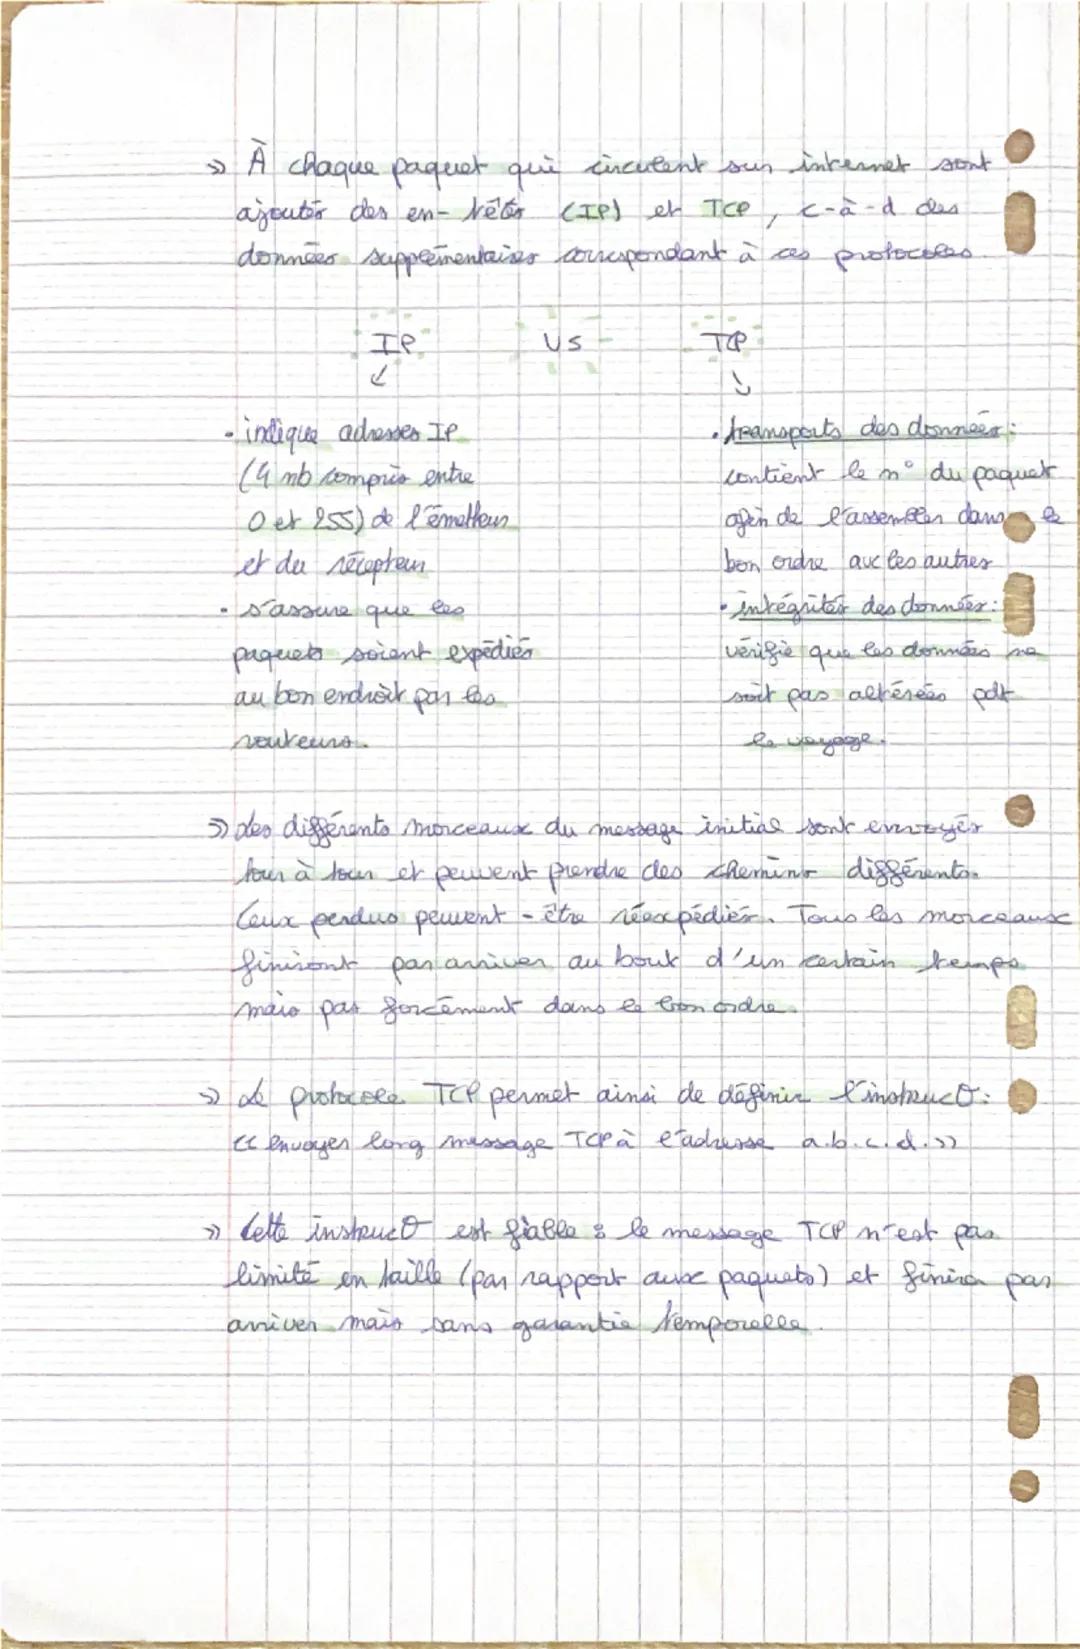 » À chaque paquet qui circulent sur internet sont
ajoutés des en-têtes (IP) et TCP, c-à-d des
données supplémentaires correspondant à ces protocoles.
IP VS TCP
• indique adresses IP
(4 nb compris entre
0 et 255) de l'émetteur
et du récepteur
• s'assure que les
paquets soient expédiés
au bon endroit par les
routeurs.
• transports des données :
contient le n° du paquet
afin de l'assembler dans le
bon ordre avc les autres
• intégrités des données :
vérifie que les données ne
soit pas altérées pdt
le voyage.
» des différents morceaux du message initial sont envoyés
tour à tour et peuvent prendre des chemins différents.
Ceux perdus peuvent-être réexpédiés. Tous les morceaux
finiront par arriver au bout d'un certain temps
mais pas forcément dans le bon ordre.
» Le protocole TCP permet ainsi de définir l'instrucθ :
« envoyer long message TCP à l'adresse a.b.c.d. »
» Cette instrucθ est fiable : le message TCP n'est pas
limité en taille (par rapport aux paquets) et finira par
arriver mais sans garantie temporelle.